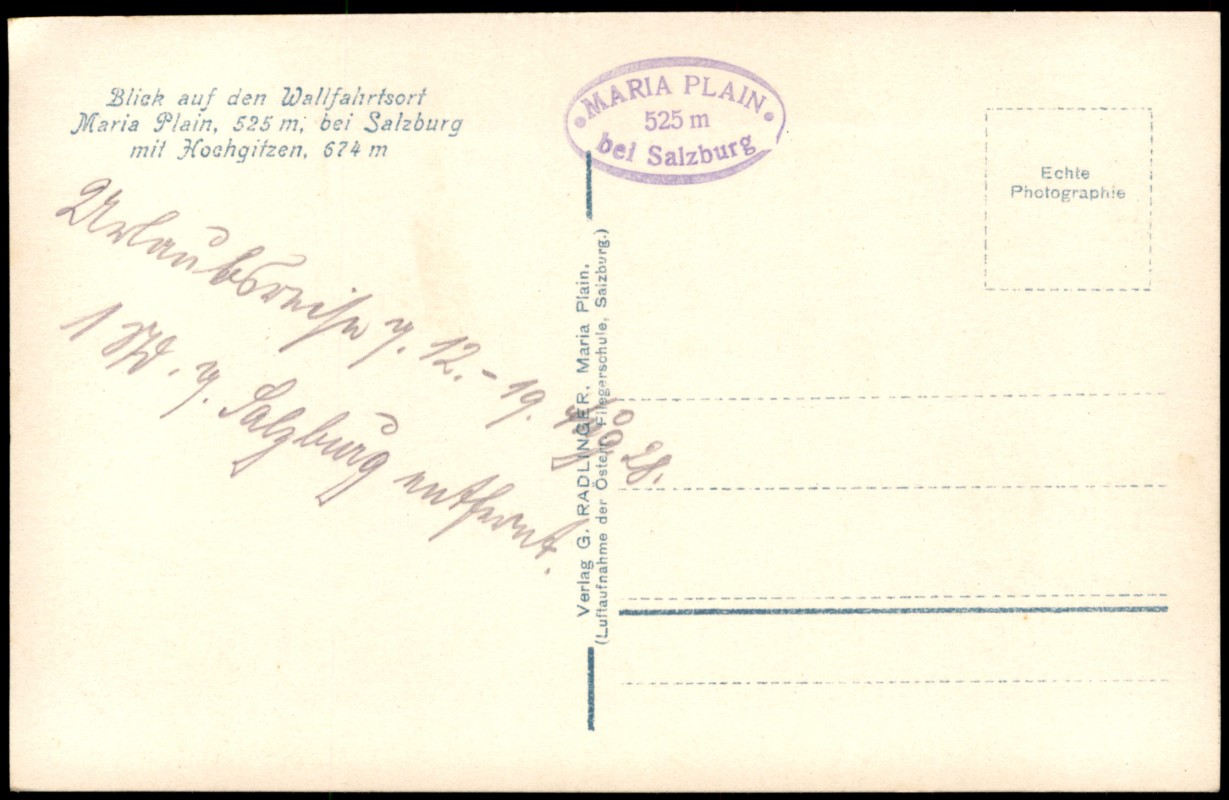 Blick auf den Wallfahrtsort
Maria Plain, 525 m, bei Salzburg
mit Hochgitzen, 674 m
MARIA PLAIN
525 m
bei Salzburg
Echte
Photographie
Urlaubsreise v. 12.-19. 28.
1 St. v. Salzburg entfernt.
Verlag G. RADLINGER. Maria Plain.
(Luftaufnahme der Österr. Fliegerschule, Salzburg.)